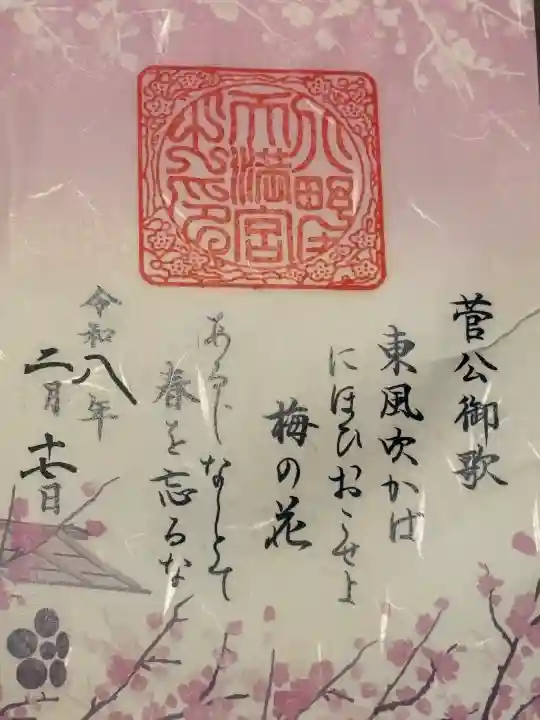 菅公御歌
東風吹かば
にほひおこせよ
梅の花
あるじなしとて
春を忘るな
令和八年
二月十七日
天満宮